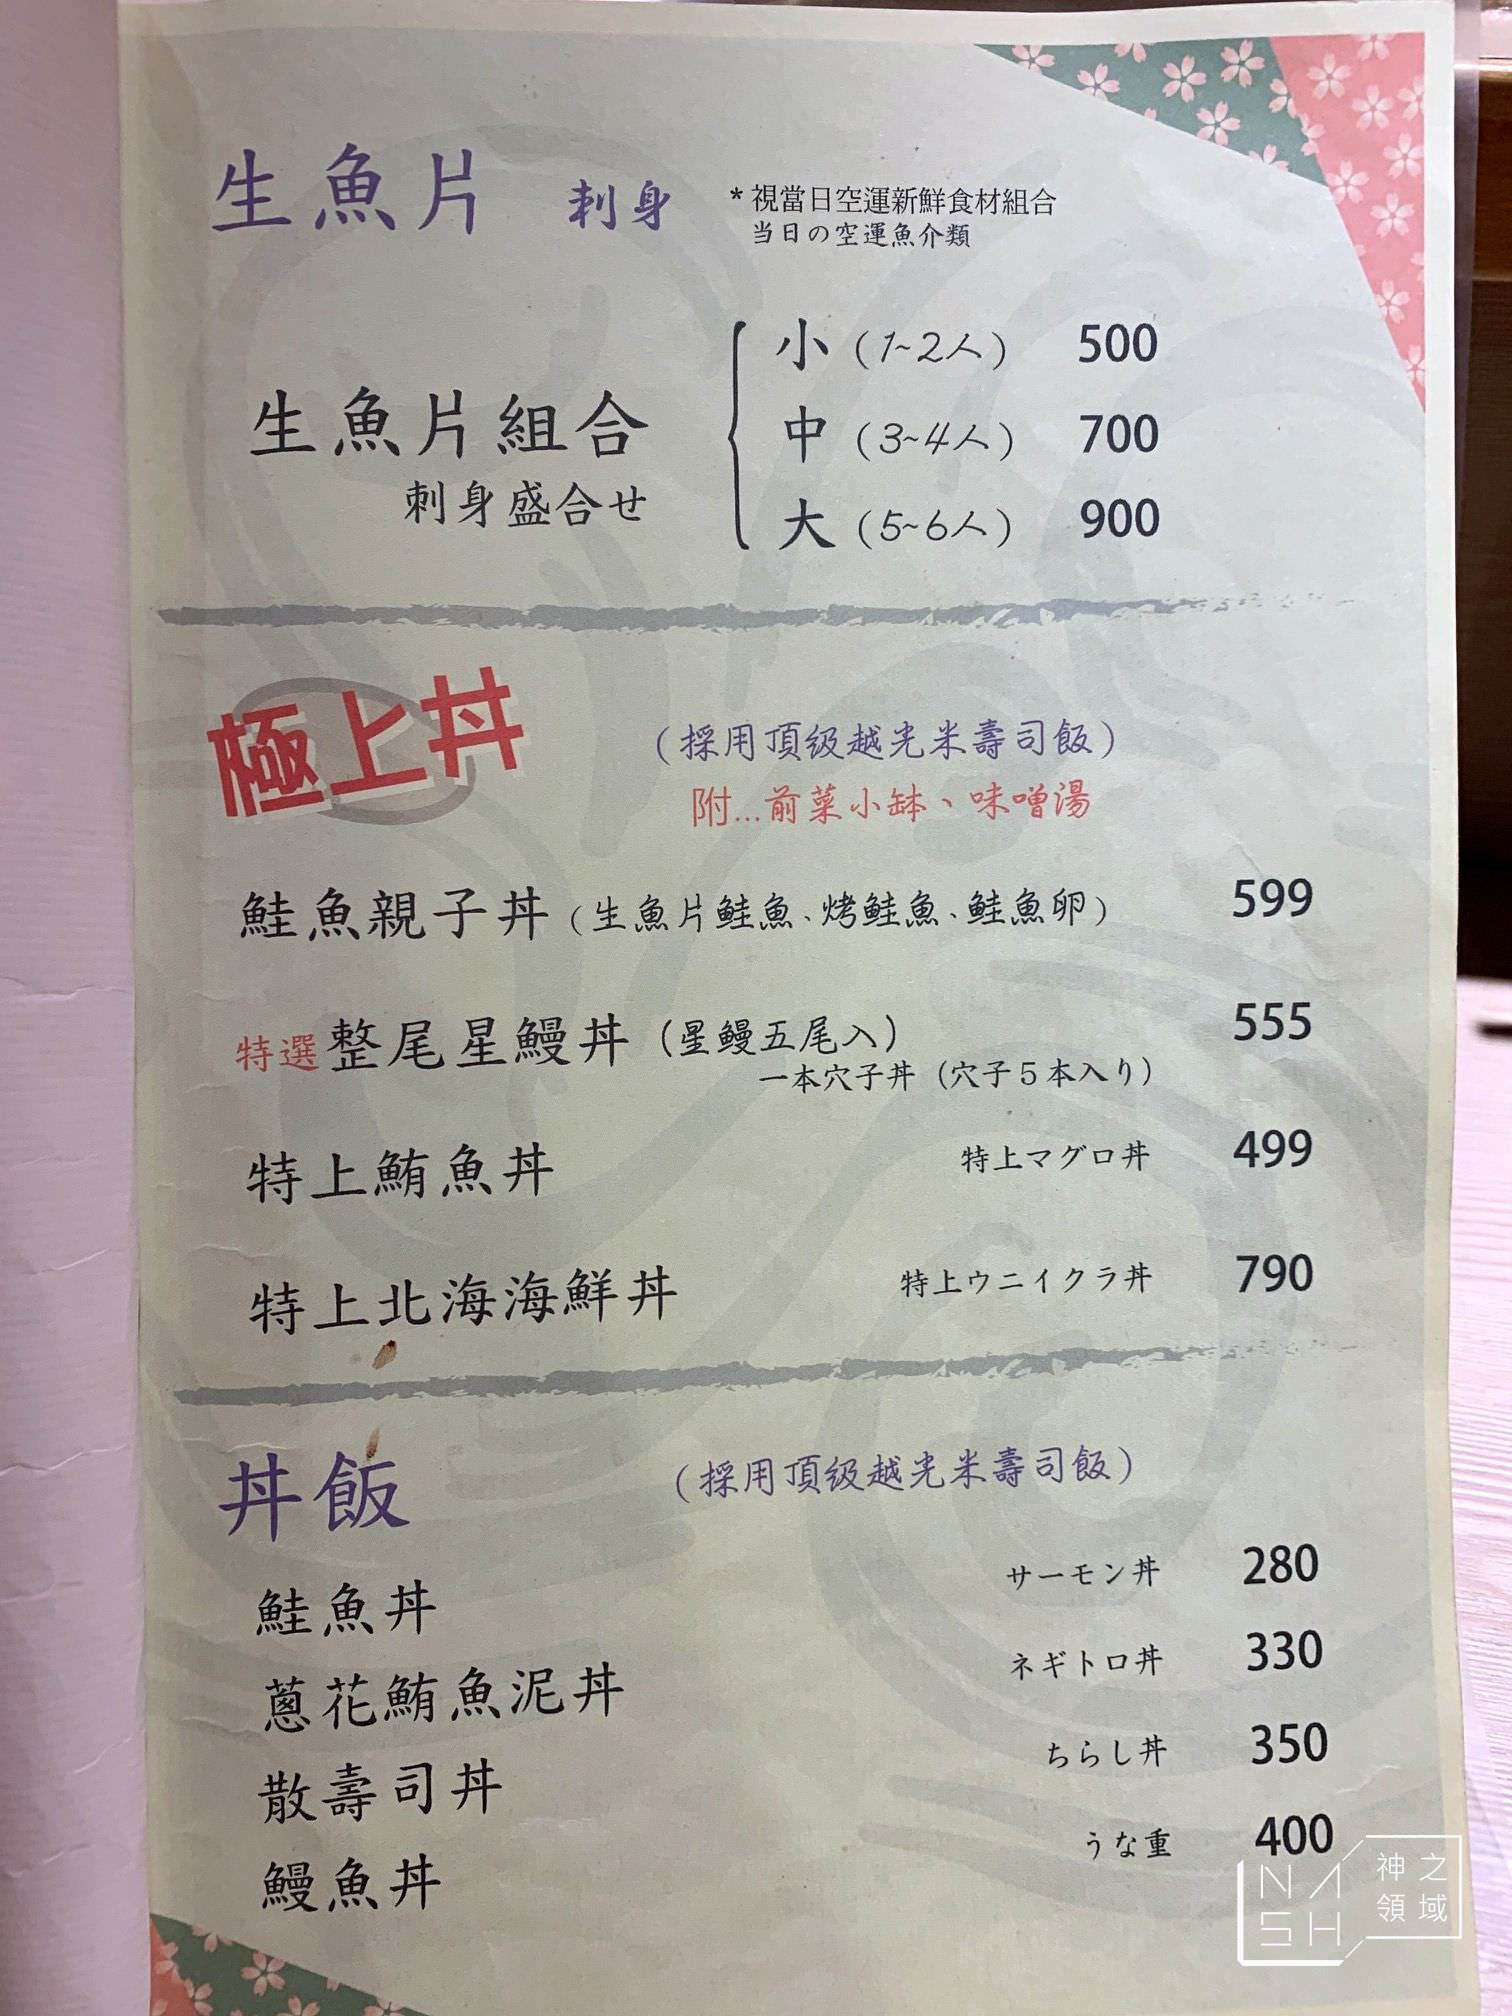 生魚片 刺身 *視當日空運新鮮食材組合
当日の空運魚介類
小 (1~2人) 500
生魚片組合 中 (3~4人) 700
刺身盛合せ 大 (5~6人) 900
極上丼 (採用頂級越光米壽司飯)
附...前菜小缽、味噌湯
鮭魚親子丼 (生魚片鮭魚、烤鮭魚、鮭魚卵) 599
特選 整尾星鰻丼 (星鰻五尾入) 555
一本穴子丼 (穴子5本入り)
特上鮪魚丼 特上マグロ丼 499
特上北海海鮮丼 特上ウニイクラ丼 790
丼飯 (採用頂級越光米壽司飯)
鮭魚丼 サーモン丼 280
蔥花鮪魚泥丼 ネギトロ丼 330
散壽司丼 ちらし丼 350
鰻魚丼 うな重 400
NASH 神之領域